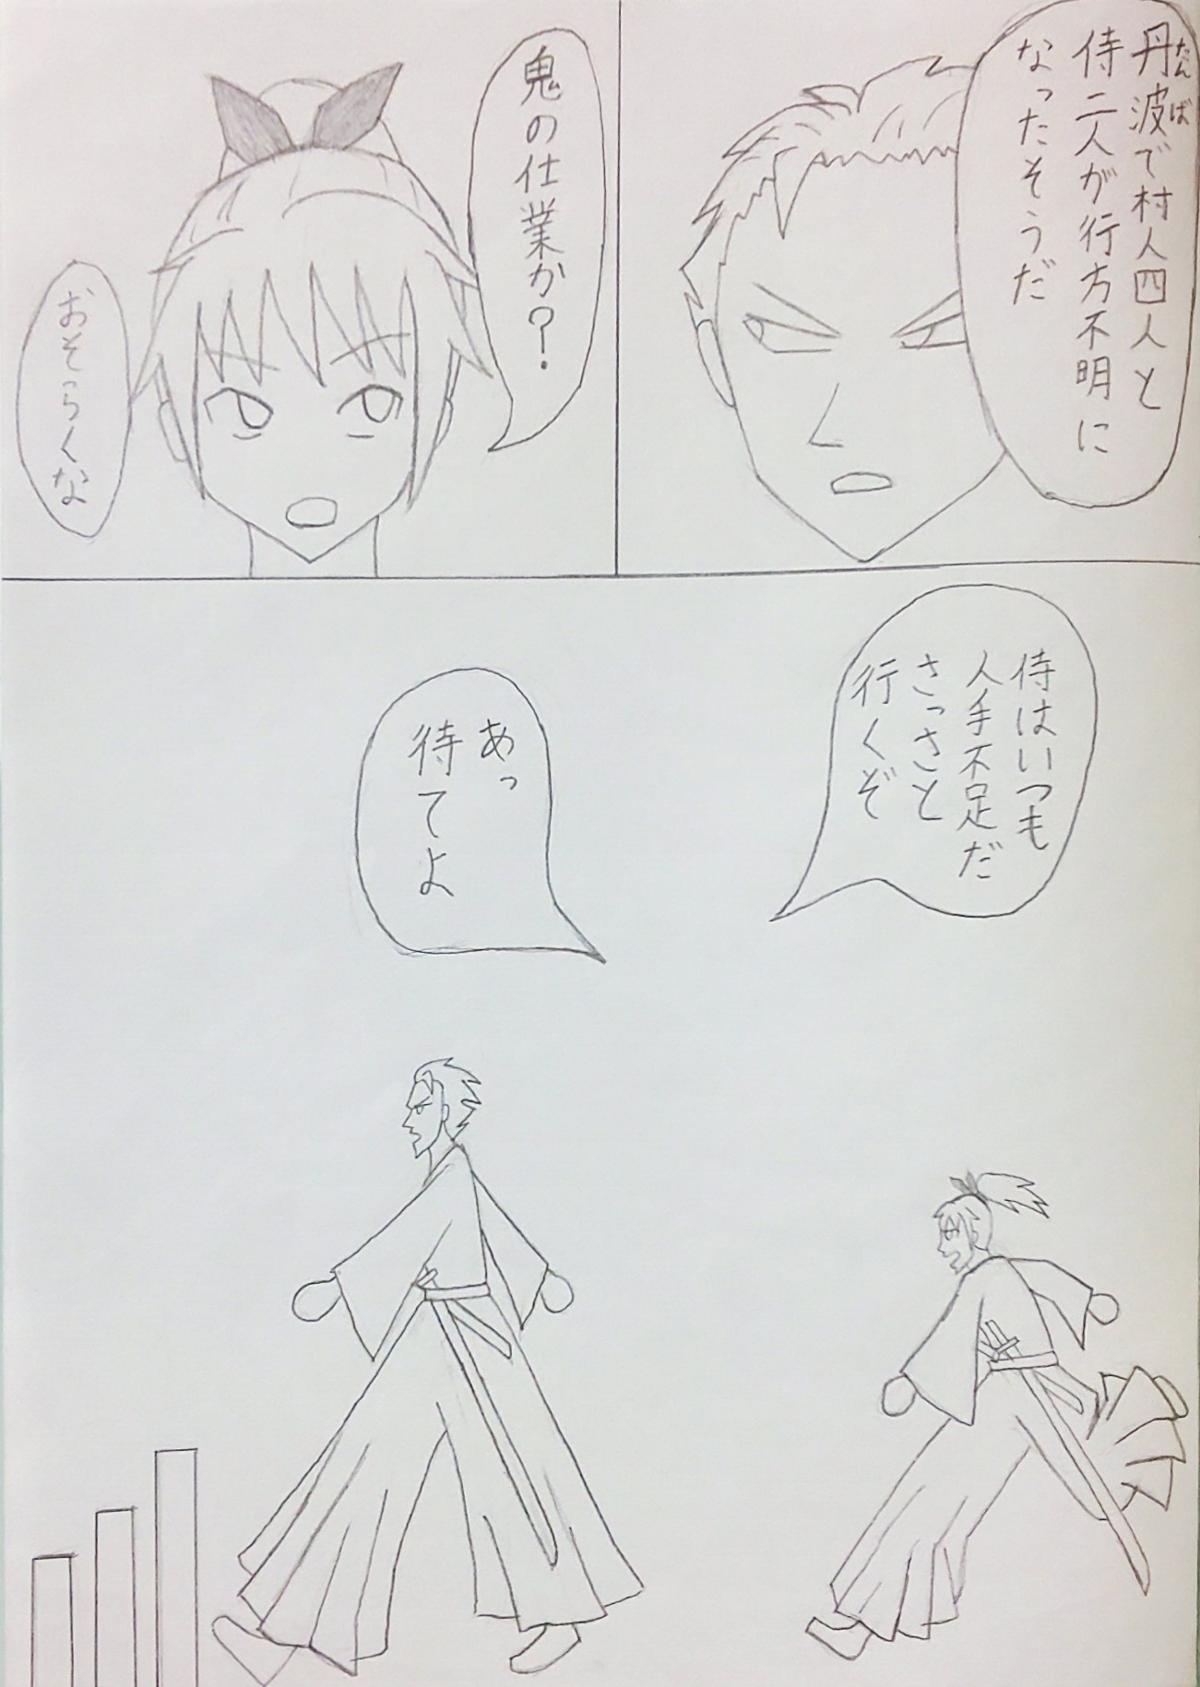 丹波で村人四人と
だんば
侍二人が行方不明に
なったそうだ
鬼の仕業か?
おそらくな
侍はいつも
人手不足だ
さっさと
行くぞ
あっ
待てよ